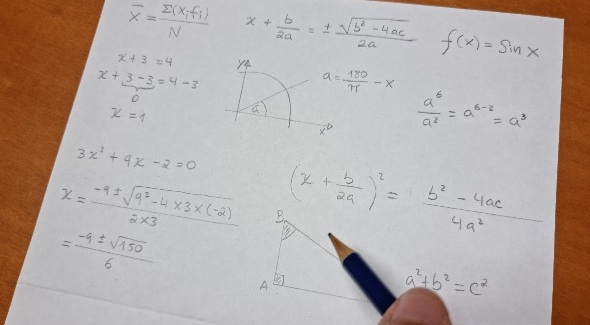 x̄ = Σ(xᵢfᵢ) / N
x + b/2a = ± √(b² - 4ac) / 2a
f(x) = Sin x
x + 3 = 4
x + 3 - 3 = 4 - 3
0
x = 1
y
a
x
a = 180/π - x
a⁶/a² = a⁶⁻² = a³
3x² + 9x - 2 = 0
x = (-9 ± √(9² - 4 × 3 × (-2))) / (2×3)
= (-9 ± √150) / 6
(x + b/2a)² = (b² - 4ac) / 4a²
B
A
a² + b² = c²